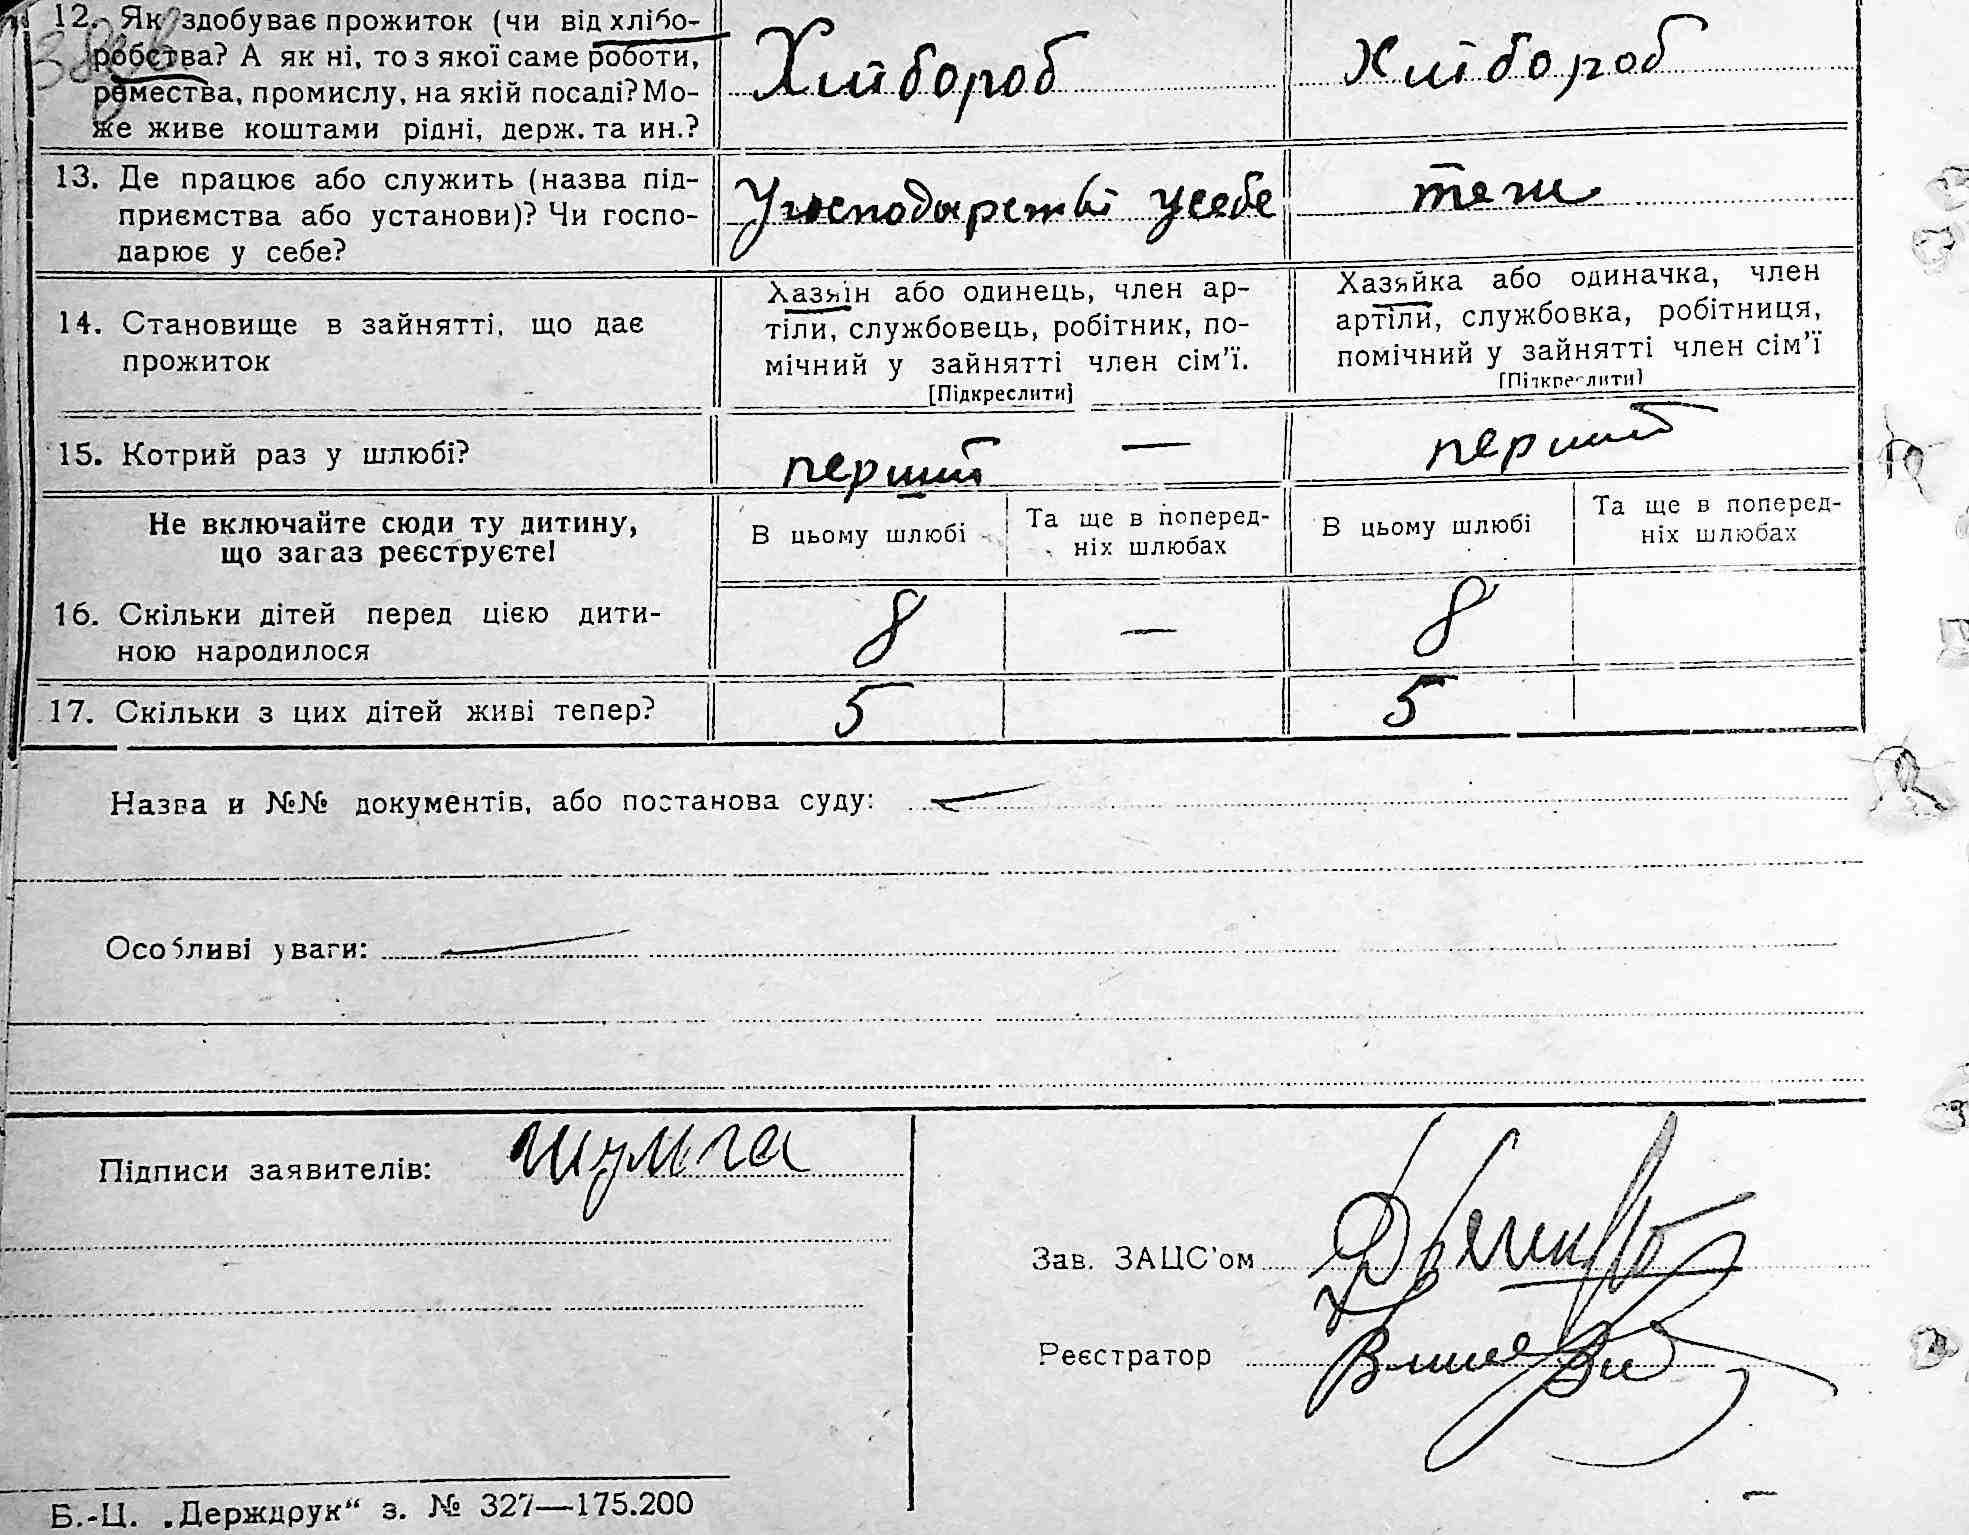 12. Як здобуває прожиток (чи від хлібо-
робства? А як ні, то з якої саме роботи,
ремества, промислу, на якій посаді? Мо-
же живе коштами рідні, держ. та ин.?
Хлібороб
Хлібороб
13. Де працює або служить (назва під-
приємства або установи)? Чи госпо-
дарює у себе?
У господарстві у себе
теж
14. Становище в зайнятті, що дає
прожиток
Хазяїн або одинець, член ар-
тіли, службовець, робітник, по-
мічний у зайнятті член сім'ї.
[Підкреслити]
Хазяйка або одиначка, член
артіли, службовка, робітниця,
помічний у зайнятті член сім'ї
[Підкреслити]
15. Котрий раз у шлюбі?
перший —
перший
Не включайте сюди ту дитину,
що загаз реєструєте!
В цьому шлюбі
Та ще в поперед-
ніх шлюбах
В цьому шлюбі
Та ще в поперед-
ніх шлюбах
16. Скільки дітей перед цією дити-
ною народилося
8 — 8
17. Скільки з цих дітей живі тепер?
5 5
Назва и №№ документів, або постанова суду: —
Особливі уваги: —
Підписи заявителів: Шульга
Зав. ЗАЦС'ом
Реєстратор
Б.-Ц. „Держдрук“ з. № 327—175.200